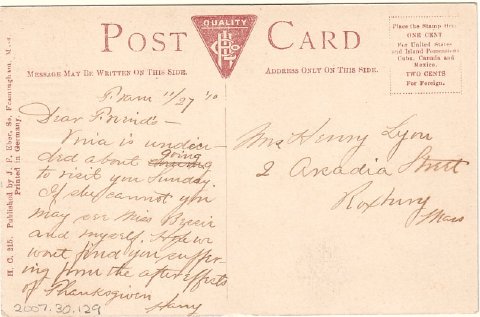 POST CARD
QUALITY
MESSAGE MAY BE WRITTEN ON THIS SIDE.
ADDRESS ONLY ON THIS SIDE.
Place the Stamp Here
ONE CENT
For United States
and Island Possessions
Cuba, Canada and
Mexico.
TWO CENTS
For Foreign.
H. C. 215. Published by J. F. Eber, So. Framingham, Mass.
Printed in Germany.
Fram 11/27 '10
Dear Friends-
is undeci-
ded about going
to visit you Sunday.
If she cannot you
may see Miss
and myself. Hope we
wont find you suffer-
ing from the after effects
of Thanksgiven
Harry
Mrs Henry Lyon
2 Arcadia Street
Roxbury
Mass
2007.30.129